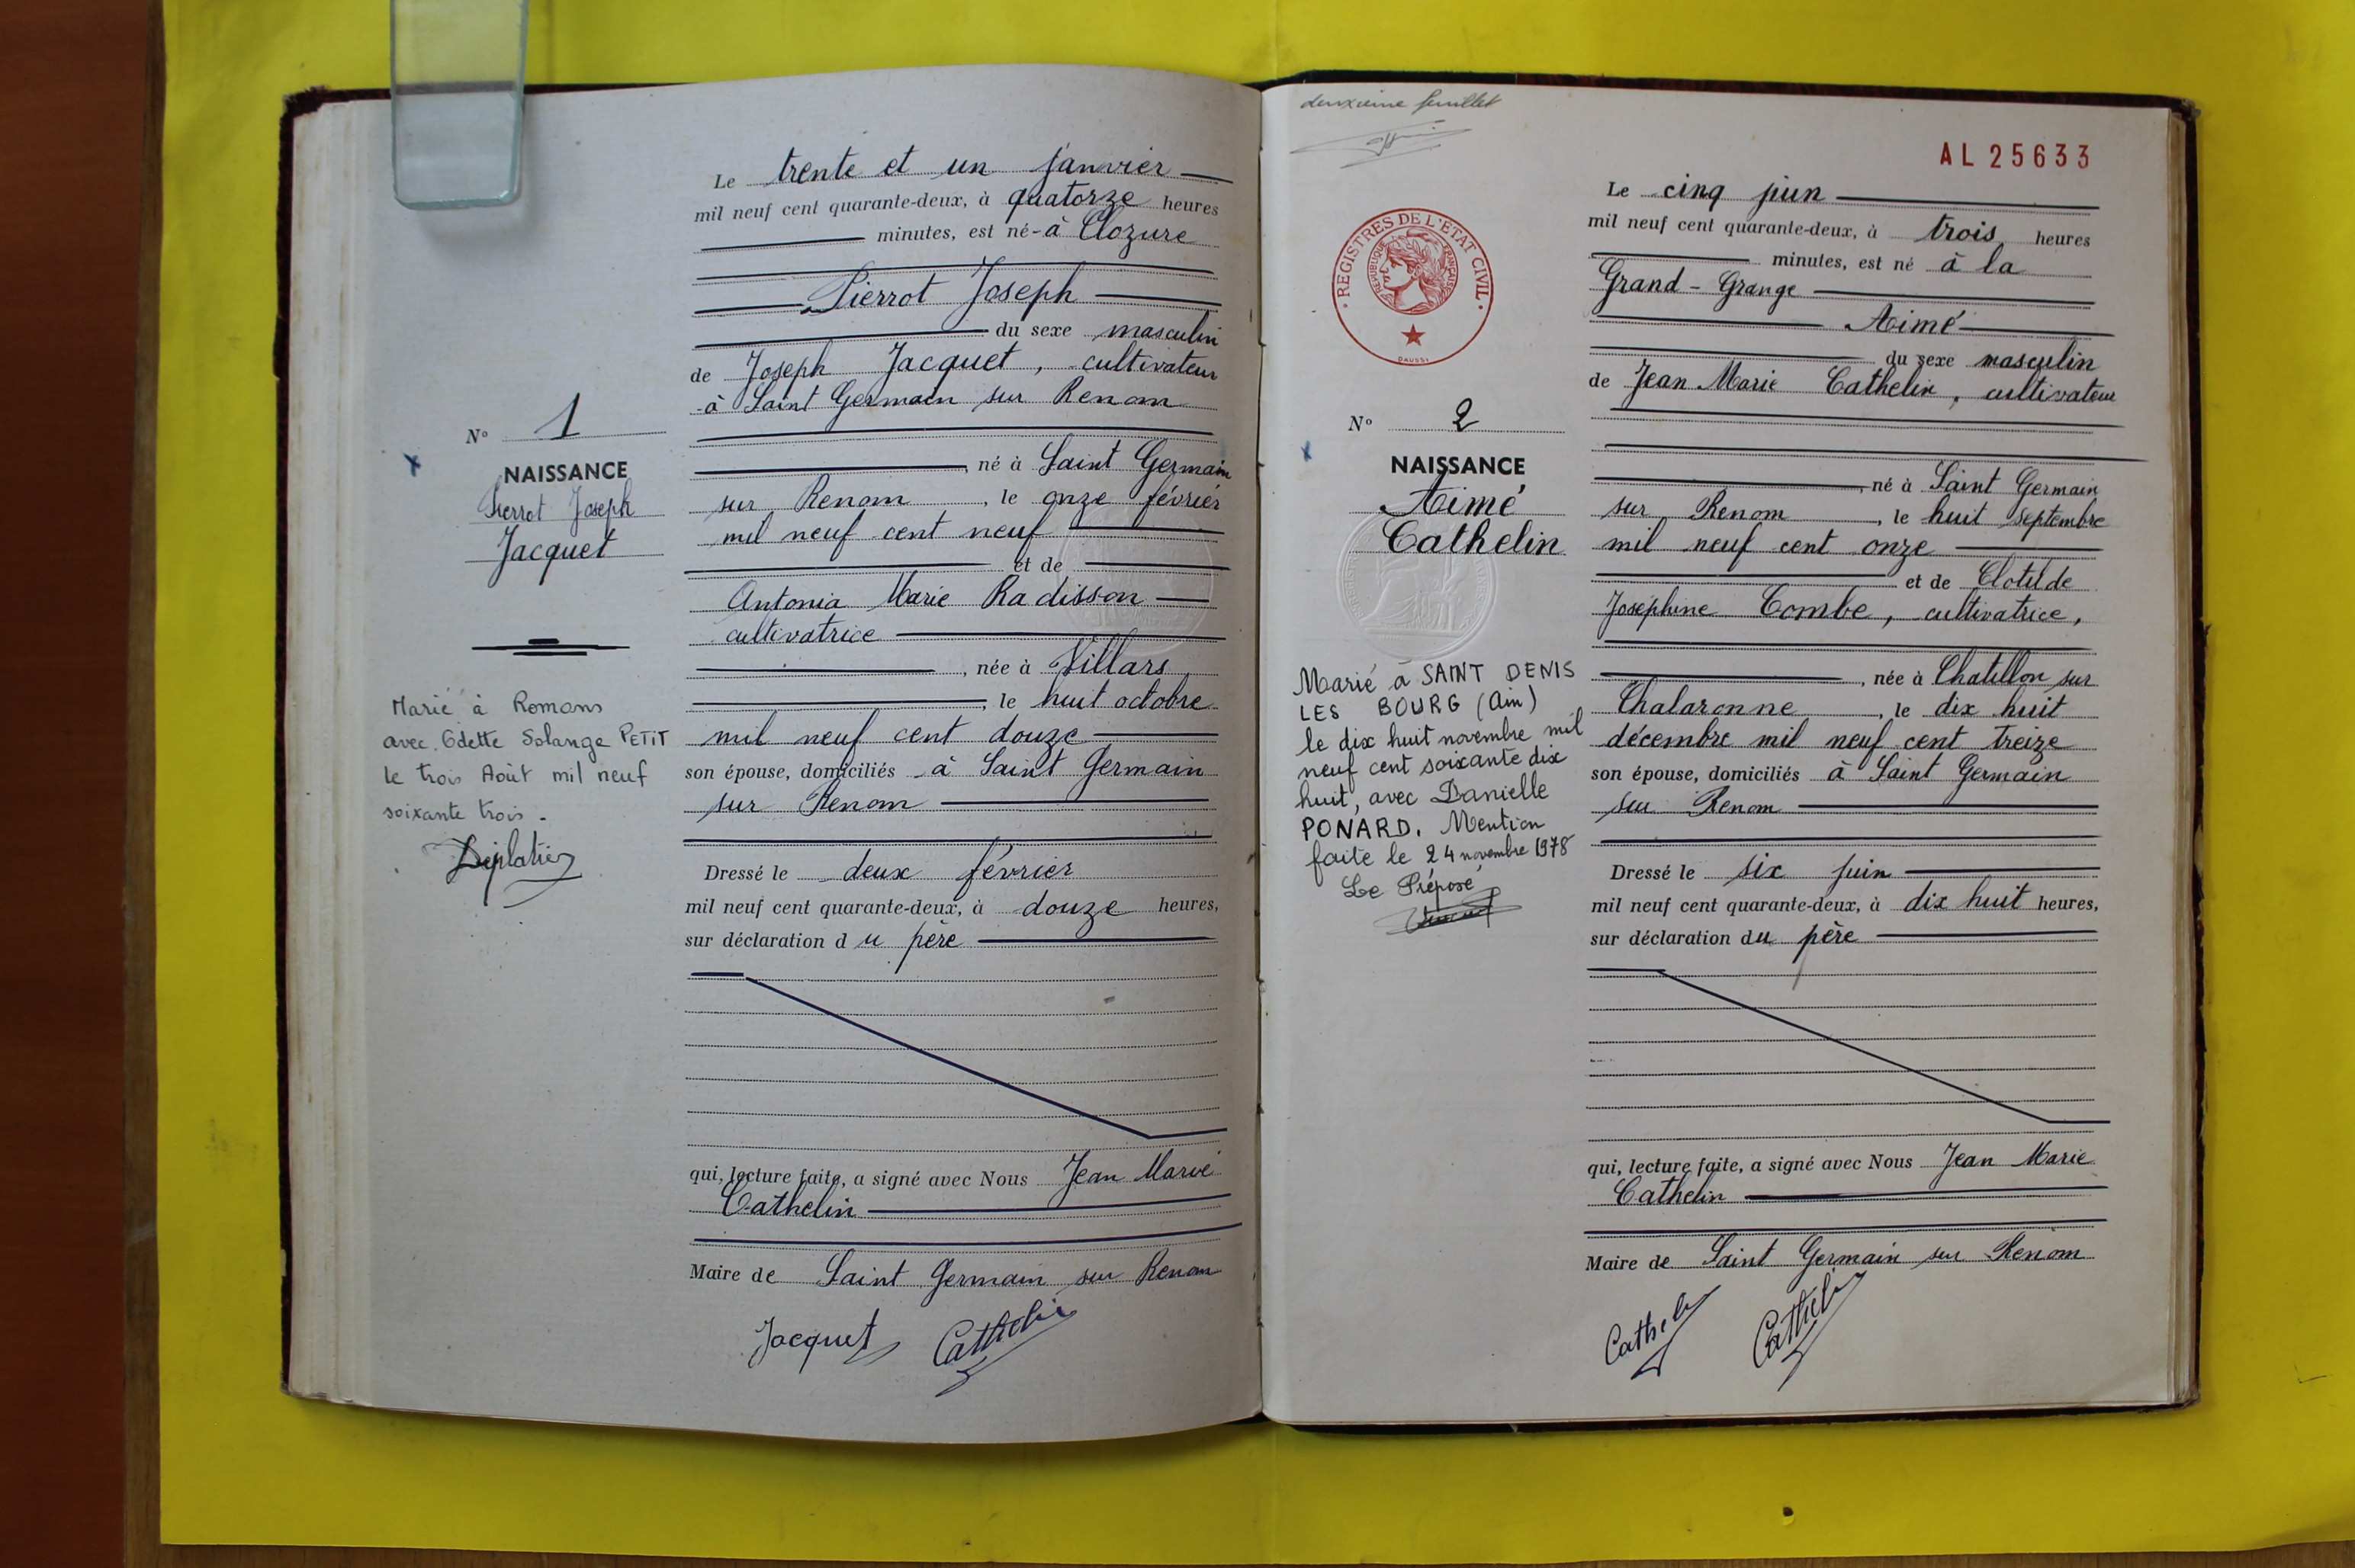 Le trente et un janvier
mil neuf cent quarante-deux, à quatorze heures
minutes, est né à Clozure
Pierrot Joseph
du sexe masculin
de Joseph Jacquet, cultivateur
à Saint Germain sur Renom
né à Saint Germain
sur Renom, le onze février
mil neuf cent neuf
et de
Antonia Marie Radisson
cultivatrice
, née à Villars
, le huit octobre
mil neuf cent douze
son épouse, domiciliés à Saint Germain
sur Renom
Dressé le deux février
mil neuf cent quarante-deux, à douze heures,
sur déclaration du père
qui, lecture faite, a signé avec Nous Jean Marie
Cathelin
Maire de Saint Germain sur Renom
Jacquet Cathelin
N° 1
NAISSANCE
Pierrot Joseph
Jacquet
Marié à Romans
avec Odette Solange PETIT
le trois Août mil neuf
soixante trois.
deuxième feuillet
AL 25633
REGISTRES DE L'ETAT CIVIL
REPUBLIQUE FRANÇAISE
DAUSSI
N° 2
NAISSANCE
Aimé
Cathelin
Marié à SAINT DENIS
LES BOURG (Ain)
le dix huit novembre mil
neuf cent soixante dix
huit, avec Danielle
PONARD. Mention
faite le 24 novembre 1978
Le Préposé
Le cinq juin
mil neuf cent quarante-deux, à trois heures
minutes, est né à la
Grand-Grange
Aimé
du sexe masculin
de Jean Marie Cathelin, cultivateur
, né à Saint Germain
sur Renom, le huit septembre
mil neuf cent onze
et de Clotilde
Joséphine Combe, cultivatrice,
, née à Chatillon sur
Chalaronne, le dix huit
décembre mil neuf cent treize
son épouse, domiciliés à Saint Germain
sur Renom
Dressé le six juin
mil neuf cent quarante-deux, à dix huit heures,
sur déclaration du père
qui, lecture faite, a signé avec Nous Jean Marie
Cathelin
Maire de Saint Germain sur Renom
Cathelin Cathelin